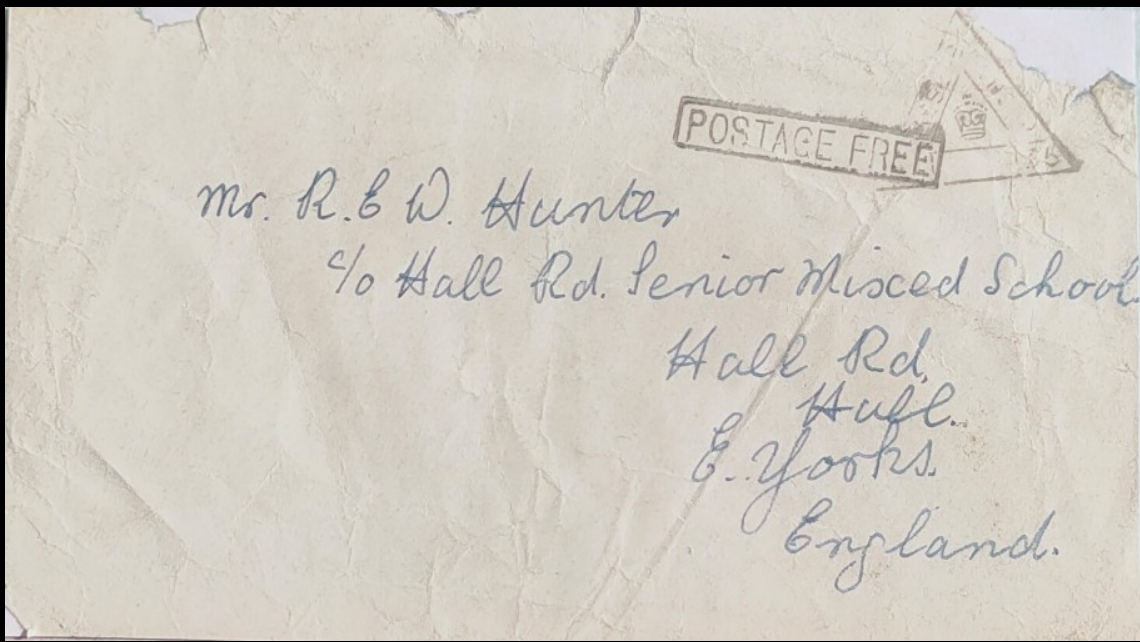 POSTAGE FREE
Mr. R. E W. Hunter
c/o Hall Rd. Senior Mixced School
Hall Rd.
Hull.
E. Yorks.
England.